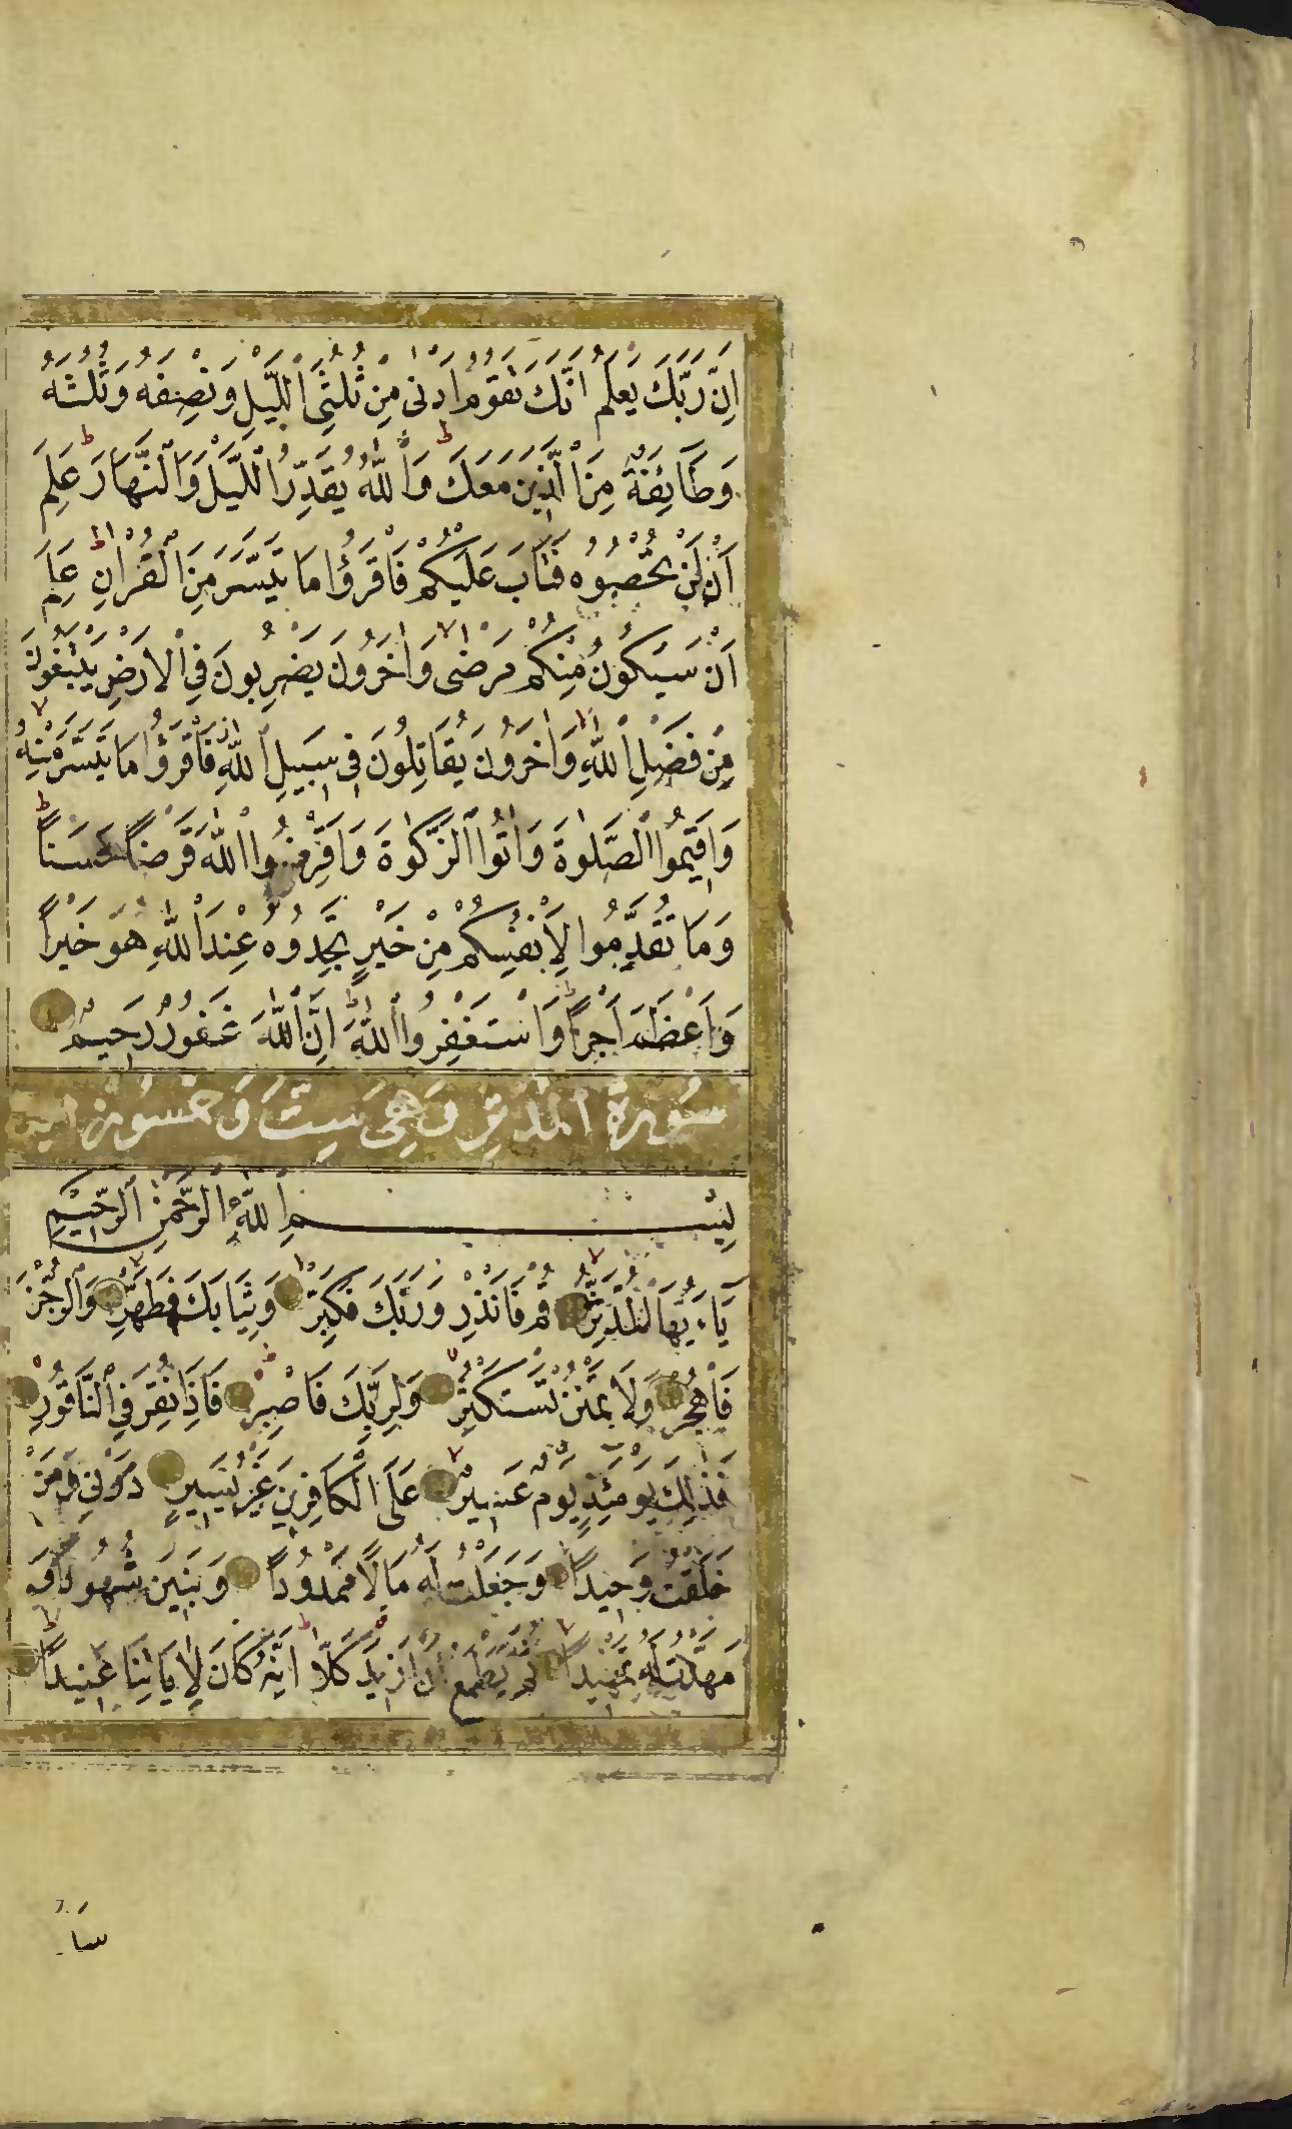 اِنَّ رَبَّكَ يَعْلَمُ اَنَّكَ تَقُومُ اَدْنٰى مِنْ ثُلُثَيِ الَّيْلِ وَنِصْفَهُ وَثُلُثَهُ
وَطَآئِفَةٌ مِنَ الَّذِينَ مَعَكَ ط وَاللّٰهُ يُقَدِّرُ الَّيْلَ وَالنَّهَارَ ط عَلِمَ
اَنْ لَنْ تُحْصُوهُ فَتَابَ عَلَيْكُمْ فَاقْرَؤُا مَا تَيَسَّرَ مِنَ الْقُرْاٰنِ ط عَلِمَ
اَنْ سَيَكُونُ مِنْكُمْ مَرْضٰى لا وَاٰخَرُونَ يَضْرِبُونَ فِي الْاَرْضِ يَبْتَغُونَ
مِنْ فَضْلِ اللّٰهِ لا وَاٰخَرُونَ يُقَاتِلُونَ فِي سَبِيلِ اللّٰهِ فَاقْرَؤُا مَا تَيَسَّرَ مِنْهُ لا
وَاَقِيمُوا الصَّلٰوةَ وَاٰتُوا الزَّكٰوةَ وَاَقْرِضُوا اللّٰهَ قَرْضًا حَسَنًا ط
وَمَا تُقَدِّمُوا لِاَنْفُسِكُمْ مِنْ خَيْرٍ تَجِدُوهُ عِنْدَ اللّٰهِ هُوَ خَيْرًا
وَاَعْظَمَ اَجْرًا ط وَاسْتَغْفِرُوا اللّٰهَ ط اِنَّ اللّٰهَ غَفُورٌ رَحِيمٌ
سُورَةُ الْمُدَّثِّرِ وَهِيَ سِتٌّ وَخَمْسُونَ
بِسْمِ اللّٰهِ الرَّحْمٰنِ الرَّحِيمِ
يَآءَيُّهَا الْمُدَّثِّرُ لا قُمْ فَاَنْذِرْ وَرَبَّكَ فَكَبِّرْ وَثِيَابَكَ فَطَهِّرْ لا وَالرُّجْزَ
فَاهْجُرْ وَلَا تَمْنُنْ تَسْتَكْثِرُ وَلِرَبِّكَ فَاصْبِرْ فَاِذَا نُقِرَ فِي النَّاقُورِ
فَذٰلِكَ يَوْمَئِذٍ يَوْمٌ عَسِيرٌ لا عَلَى الْكَافِرِينَ غَيْرُ يَسِيرٍ ذَرْنِي وَمَنْ
خَلَقْتُ وَحِيدًا وَجَعَلْتُ لَهُ مَالًا مَمْدُودًا وَبَنِينَ شُهُودًا وَ
مَهَّدْتُ لَهُ تَمْهِيدًا لا ثُمَّ يَطْمَعُ اَنْ اَزِيدَ كَلَّا ط اِنَّهُ كَانَ لِاٰيَاتِنَا عَنِيدًا ط
سَا